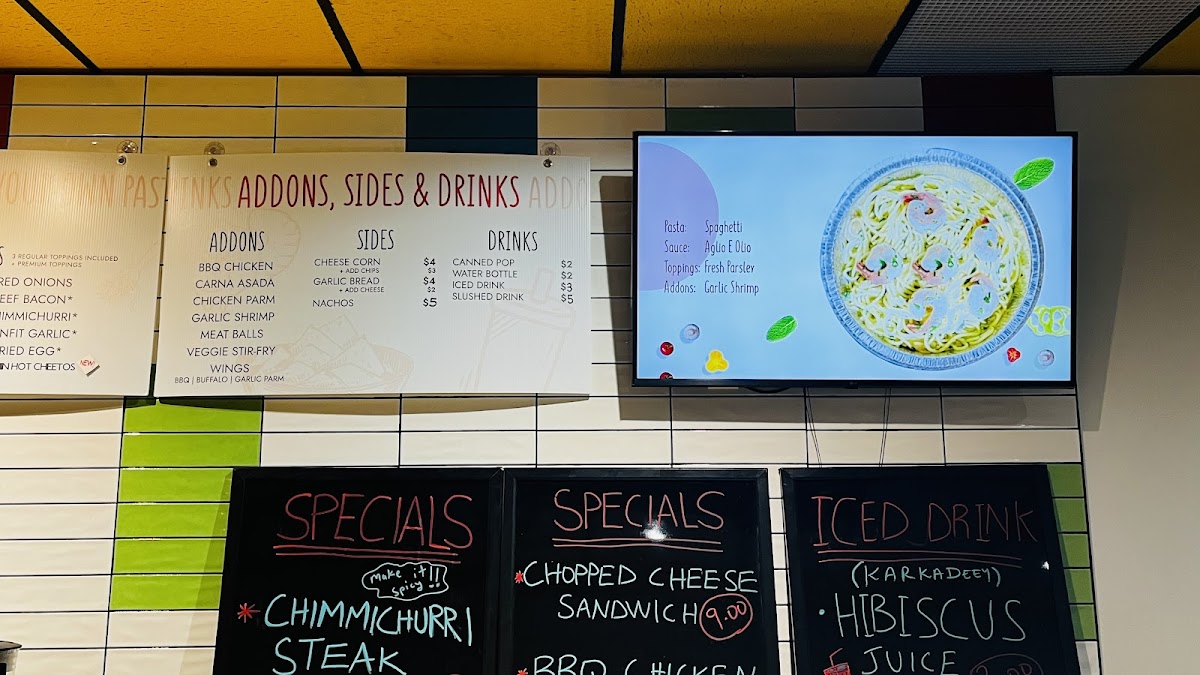 ADDONS, SIDES & DRINKS
3 REGULAR TOPPINGS INCLUDED
+ PREMIUM TOPPINGS
RED ONIONS
EEF BACON*
HIMMICHURRI*
NFIT GARLIC*
RIED EGG*
IN HOT CHEETOS NEW
ADDONS
BBQ CHICKEN
CARNA ASADA
CHICKEN PARM
GARLIC SHRIMP
MEAT BALLS
VEGGIE STIR-FRY
WINGS
BBQ | BUFFALO | GARLIC PARM
SIDES
CHEESE CORN $4
+ ADD CHIPS $3
GARLIC BREAD $4
+ ADD CHEESE $2
NACHOS $5
DRINKS
CANNED POP $2
WATER BOTTLE $2
ICED DRINK $3
SLUSHED DRINK $5
Pasta: Spaghetti
Sauce: Aglio E Olio
Toppings: Fresh Parsley
Addons: Garlic Shrimp
SPECIALS
make it
spicy!!
* CHIMMICHURRI
STEAK
SPECIALS
* CHOPPED CHEESE
SANDWICH 9.00
* BBQ CHICKEN
ICED DRINK
(KARKADEEY)
• HIBISCUS
JUICE